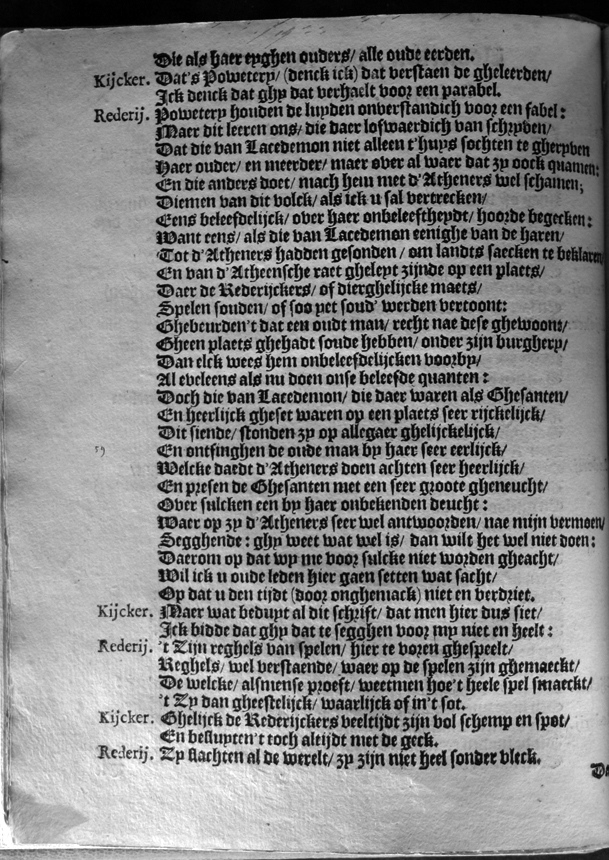 Die als haer eyghen ouders/ alle oude eerden.
Kijcker. Dat's Powetery/ (denck ick) dat verstaen de gheleerden/
Ick denck dat ghy dat verhaelt voor een parabel.
Rederij. Powetery houden de luyden onverstandich voor een fabel:
Maer dit leeren ons/ die daer lofwaerdich van schryven/
Dat die van Lacedemon niet alleen t'huys sochten te gheryven
Haer ouder/ en meerder/ maer over al waer dat zy oock quamen:
En die anders doet/ mach hem met d'Atheners wel schamen;
Diemen van dit volck/ als ick u sal vertrecken/
Eens beleefdelijck/ over haer onbeleeftheydt/ hoorde begecken:
Want eens/ als die van Lacedemon eenighe van de haren/
Tot d'Atheners hadden gesonden/ om landts saecken te beklaren/
En van d'Atheensche raet gheleyt zijnde op een plaets/
Daer de Rederijckers/ of dierghelijcke maets/
Spelen souden/ of soo yet soud' werden vertoont:
Ghebeurden't dat een oudt man/ recht nae dese ghewoont/
Gheen plaets ghehadt soude hebben/ onder zijn burghery/
Dan elck wees hem onbeleefdelijcken voorby/
Al eveleens als nu doen onse beleefde quanten:
Doch die van Lacedemon/ die daer waren als Ghesanten/
En heerlijck gheset waren op een plaets seer rijckelijck/
Dit siende/ stonden zy op allegaer ghelijckelijck/
En ontfinghen de oude man by haer seer eerlijck/
Welcke daedt d'Atheners doen achten seer heerlijck/
En presen de Ghesanten met een seer groote gheneucht/
Over sulcken een by haer onbekenden deucht:
Waer op zy d'Atheners seer wel antwoorden/ nae mijn vermoen/
Segghende: ghy weet wat wel is/ dan wilt het wel niet doen:
Daerom op dat wy me voor sulcke niet worden gheacht/
Wil ick u oude leden hier gaen setten wat sacht/
Op dat u den tijdt (door onghemack) niet en verdriet.
Kijcker. Maer wat beduyt al dit schrift/ dat men hier dus siet/
Ick bidde dat ghy dat te segghen voor my niet en heelt:
Rederij. 't Zijn reghels van spelen/ hier te voren ghespeelt/
Reghels/ wel verstaende/ waer op de spelen zijn ghemaeckt/
De welcke/ alsmense proeft/ weetmen hoe't heele spel smaeckt/
't Zy dan gheestelijck/ waarlijck of in't sot.
Kijcker. Ghelijck de Rederijckers veeltijdt zijn vol schemp en spot/
En besluyten't toch altijdt met de geck.
Rederij. Zy slachten al de werelt/ zy zijn niet heel sonder vleck.